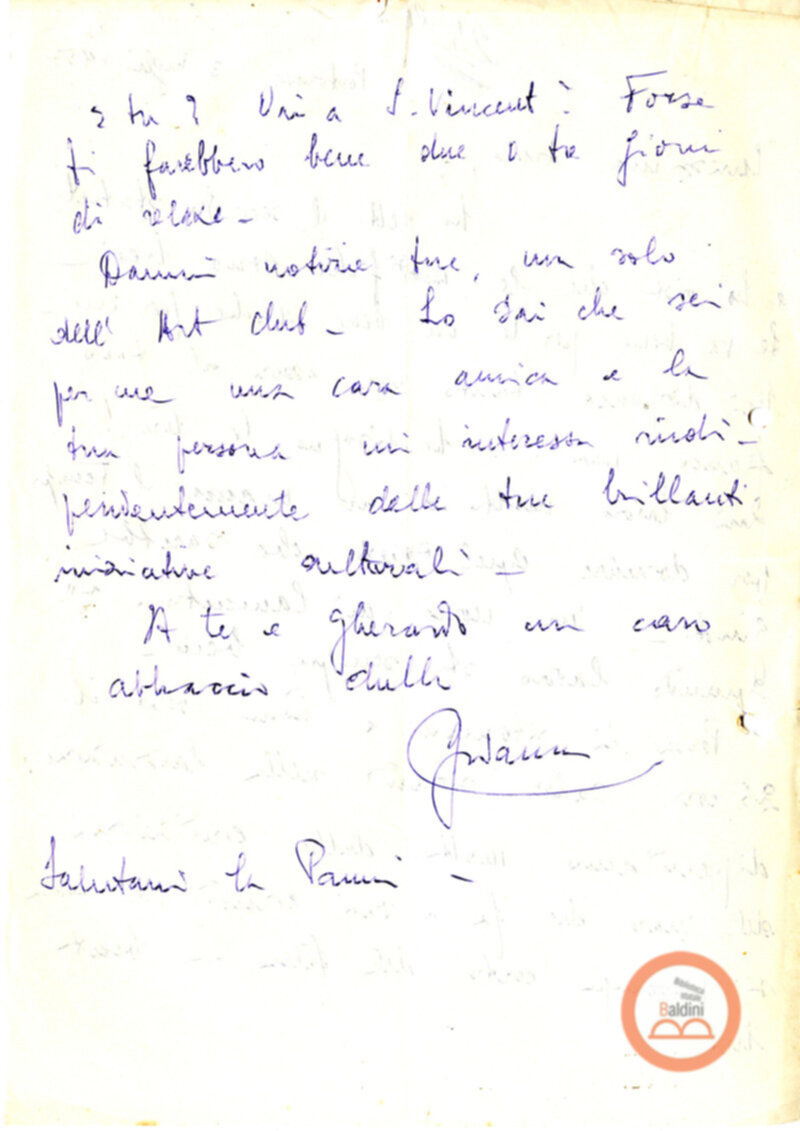 e tu? Vai a S. Vincent? Forse
ti farebbero bene due o tre giorni
di relaxe –
Dammi notizie tue, non solo
dell' Art Club – Lo sai che sei
per me una cara amica e la
tua persona mi interessa indi-
pendentemente dalle tue brillanti
iniziative culturali –
A te e Gherardo un caro
abbraccio dalla
Salutami la Pammi –
Biblioteca
statale
Baldini